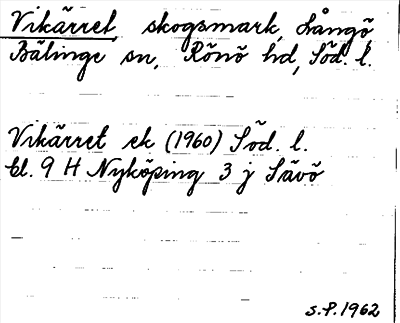 Vikärret, skogsmark, Långö
Bälinge sn, Rönö hd, Söd. l.
Vikärret ek (1960) Söd. l.
bl. 9 H Nyköping 3 j Sävö
S.P. 1962